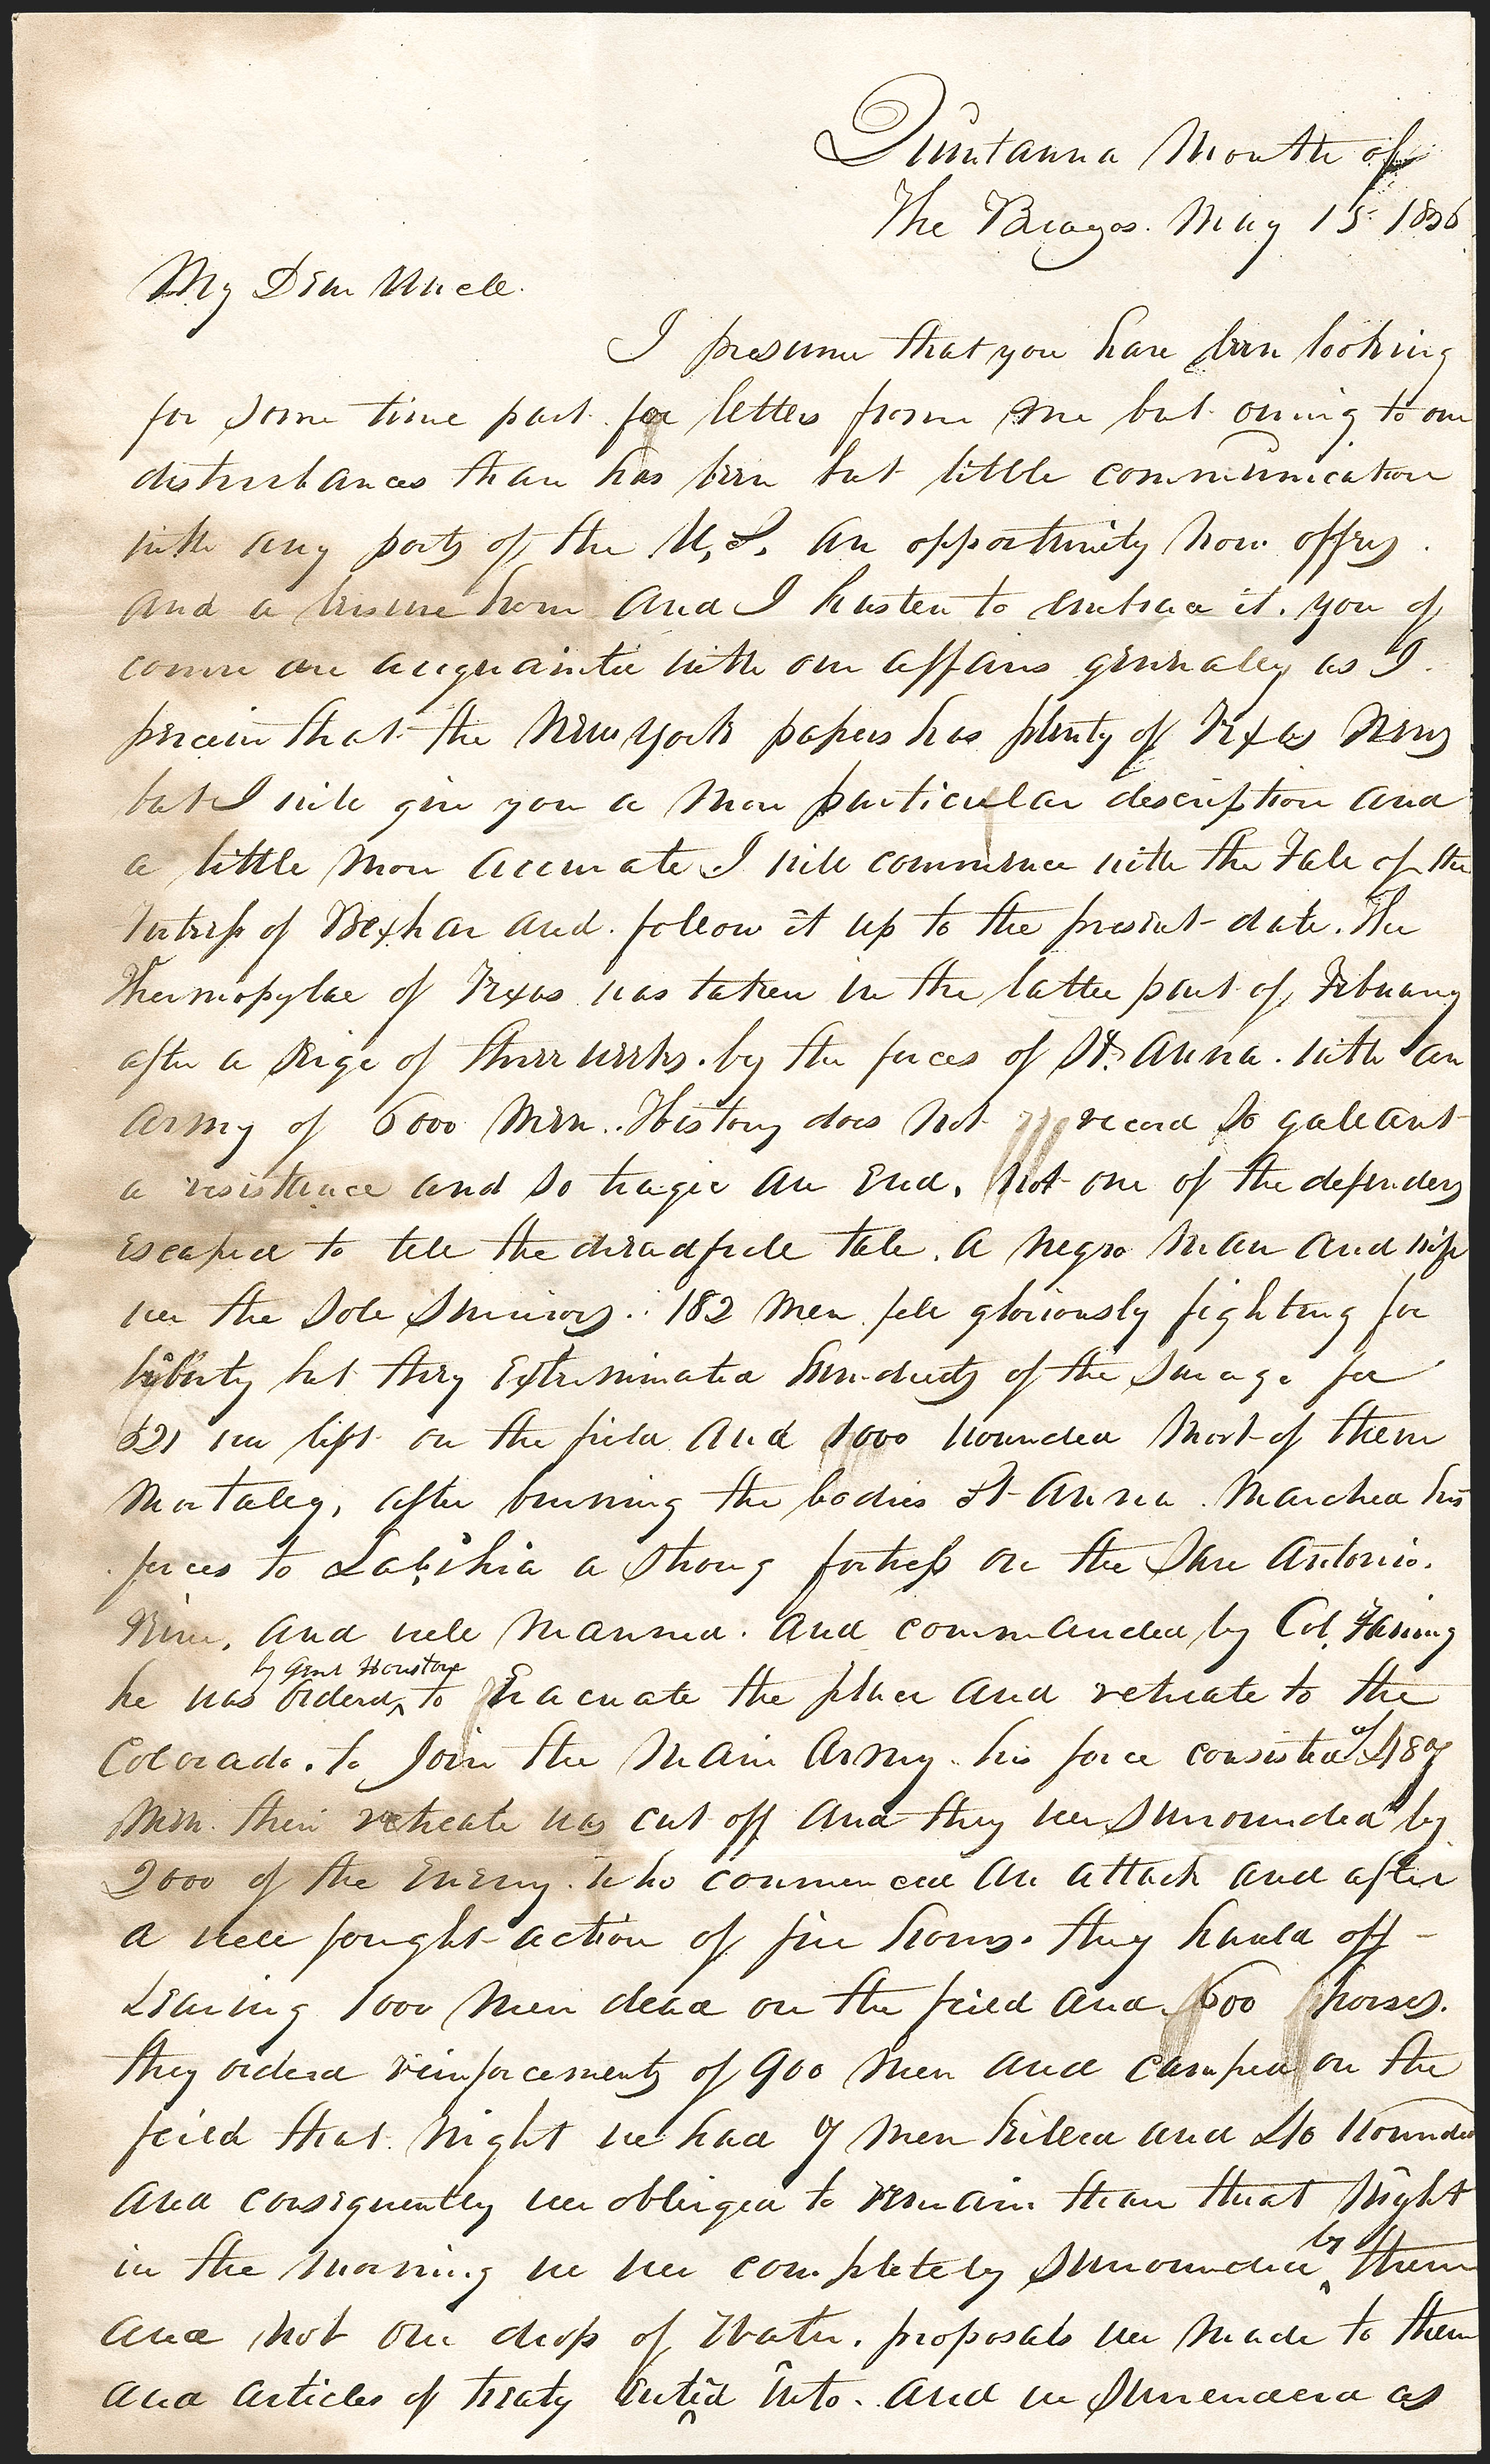 Quintanna Mouth of
The Brazos. May 15 1836
My Dear Uncle.
I presume that you have been looking
for some time past for letters from me but owing to our
disturbances thare has been but little communication
with any parts of the U,S, an opportunity now offers.
and a leisure hour and I hasten to embrace it. you of
course are acquainted with our affairs generally as I
perceive that the New york papers has plenty of Texas News
but I will give you a more particular description and
a little more accurate I will commence with the Fall of the
Fortress of Bexhar and follow it up to the present date. The
Thermopylae of Texas was taken in the latter part of, February
after a seige of three weeks. by the forces of St. Anna. with an
army of 6000 Men. History does not record so gallant
a resistance and so tragic an End, Not one of the defenders
escaped to tell the dreadfull tale. a Negro Man and wife
wer the Sole Survivors. 182 Men fell gloriously fighting for
liberty but they Exterminated hundreds of the Savage foe
521 wer left on the field and 1000 wounded Most of them
Mortally, after burning the bodies St Anna. Marched his
forces to Labihia a Strong fortress on the San Antonio.
River, and well Manned. and commanded by Col. Faning
by Genl Houston
he was orderd to Evacuate the place and retreate to the
Colorado. to Join the Main Army. his force consisted of 487
Men. their retreate was cut off and they wer Surrounded by
2000 of the Enemy. who commenced an attack and after
a well fought action of five hours. they hauld off -
Leaving 1000 Men dead on the feild and 600 horses.
they orderd reinforcements of 900 Men and camped on the
feild that Night we had 7 Men killed and 40 Wounded
and consequently wer obliged to remain thare that Night
in the Morning we wer completely Surrounded by them
and not one drop of Water. proposals wer Made to them
and articles of treaty Enterd into. and we Surrenderd as